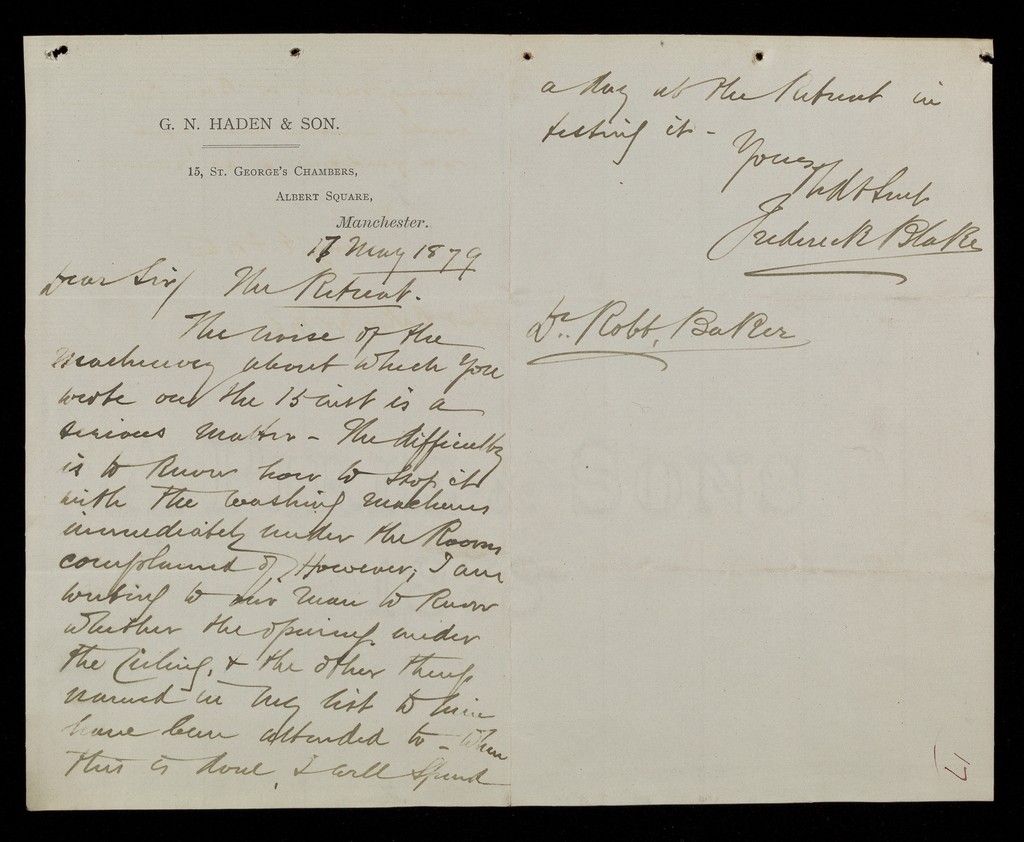 G. N. HADEN & SON.
15, ST. GEORGE'S CHAMBERS,
ALBERT SQUARE,
Manchester.
17 May 1879
Dear Sir/ The Retreat.
The noise of the
Machinery about which you
wrote on the 15 inst is a
serious matter - The difficulty
is to know how to stop it
with the washing machines
immediately under the Rooms
complained of, However, I am
writing to our Man to know
whether the opening under
the Ceiling, & the other things
named in my list to him
have been attended to - When
this is done, I will spend
a day at the Retreat in
testing it -
Yours
Frederick Blake
Dr. Robt. Baker
17